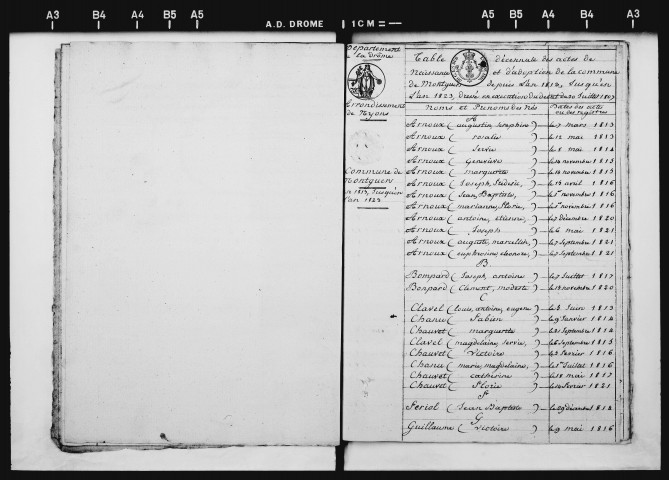 A3 B4 A4 B5 A5 A.D. DROME 1CM= A5 B5 A4 B4 A3
Departement
la drôme
Arrondissement
de Nyons
Commune de
Montguers
an 1813, Jusqu'en
l'an 1823
Table décennale des actes de
Naissance et d'adoption de la commune
de Montguers depuis l'an 1813, Jusqu'en
l'an 1823, dressé en exécution du décret du 20 Juillet 1807
Noms et Prenoms des Nés Dates des actes
ou des registres
A
Arnoux (augustin, Seraphin) le 7 mars 1813
Arnoux (rosalie) le 12 mai 1813
Arnoux (Servie) le 8 mai 1814
Arnoux (Geneviève) le 14 novembre 1815
Arnoux (marguerite) le 14 novembre 1815
Arnoux (Joseph, fréderic) le 14 avril 1816
Arnoux (Jean, Baptiste) le 1er novembre 1816
Arnoux (marianne, florie) le 1er novembre 1816
Arnoux (antoine, etienne) le 7 décembre 1820
Arnoux (Joseph) le 6 mai 1821
Arnoux (auguste, marcellin) le 7 septembre 1821
Arnoux (euphrosine, eleonore) le 7 septembre 1821
B
Bompard (Joseph, antoine) le 7 Juillet 1817
Bonpard (Clement, modeste) le 14 novembre 1820
C
Clavel (louis, antoine, eugene) le 5 Juin 1813
Chanu (fabien) le 9 Janvier 1814
Chauvet (marguerite) le 21 Septembre 1814
Clavel (magdelaine, servie) le 6 Septembre 1815
Chauvet (victoire) le 2 fevrier 1816
Chanu (marie, magdelaine) le 1er Juillet 1816
Chauvet (catherine) le 18 mai 1817
Chauvet (florie) le 10 fevrier 1821
f
feriol (Jean Baptiste) le 29 décembre 1818
G
Guillaume (victoire) le 9 mai 1816